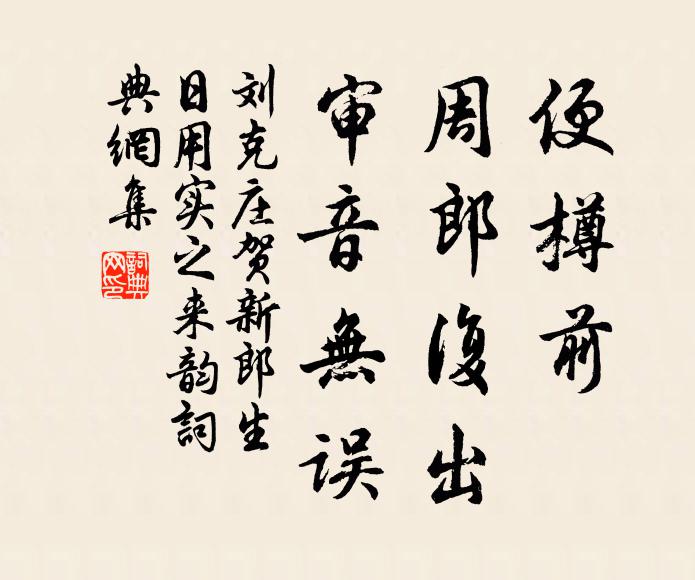 便樽前
周郎復出
审音無误
刘克庄贺新郎生
日用实之来韵詞
典網集
詞典网印